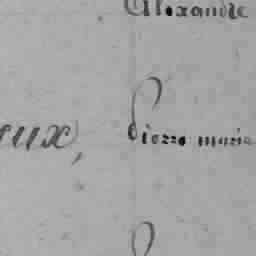 Alexandre
eux, Pierre marie